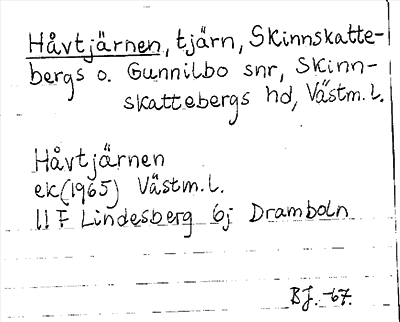 Håvtjärnen, tjärn, Skinnskatte-
bergs o. Gunnilbo snr, Skinn-
skattebergs hd, Västm.l.
Håvtjärnen
ek(1965) Västm.l.
11 F Lindesberg 6j Dramboln
BJ. -67.